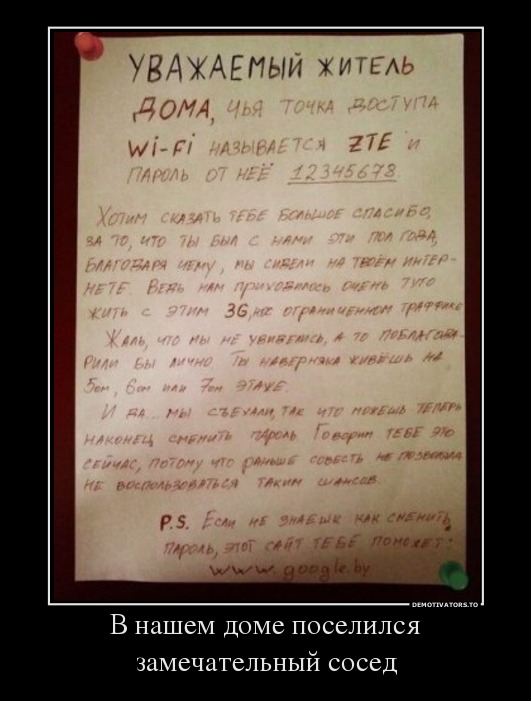 УВАЖАЕМЫЙ ЖИТЕЛЬ
ДОМА, ЧЬЯ ТОЧКА ДОСТУПА
Wi-Fi НАЗЫВАЕТСЯ ZTE И
ПАРОЛЬ ОТ НЕЁ 12345678.
ХОТИМ СКАЗАТЬ ТЕБЕ БОЛЬШОЕ СПАСИБО,
ЗА ТО, ЧТО ТЫ БЫЛ С НАМИ ЭТИ ПОЛ ГОДА,
БЛАГОДАРЯ ЧЕМУ, МЫ СИДЕЛИ НА ТВОЁМ ИНТЕР-
НЕТЕ. ВЕДЬ НАМ ПРИХОДИЛОСЬ ОЧЕНЬ ТУГО
ЖИТЬ С ЭТИМ 3G, ОГРАНИЧЕННОМ ТРАФФИКЕ
ЖАЛЬ, ЧТО МЫ НЕ УВИДЕЛИСЬ, А ТО ПОБЛАГОДА-
РИЛИ БЫ ЛИЧНО. ТЫ НАВЕРНЯКА ЖИВЁШЬ НА
5ом, 6ом ИЛИ 7ом ЭТАЖЕ.
И ДА... МЫ СЪЕХАЛИ, ТАК ЧТО МОЖЕШЬ ТЕПЕРЬ
НАКОНЕЦ СМЕНИТЬ ПАРОЛЬ. ГОВОРИМ ТЕБЕ ЭТО
СЕЙЧАС, ПОТОМУ ЧТО РАНЬШЕ СОВЕСТЬ НЕ ПОЗВОЛЯЛА
НЕ ВОСПОЛЬЗОВАТЬСЯ ТАКИМ ШАНСОМ.
P.S. ЕСЛИ НЕ ЗНАЕШЬ КАК СМЕНИТЬ
ПАРОЛЬ, ЭТОТ САЙТ ТЕБЕ ПОМОЖЕТ:
www.google.by
DEMOTIVATORS.TO
В нашем доме поселился
замечательный сосед